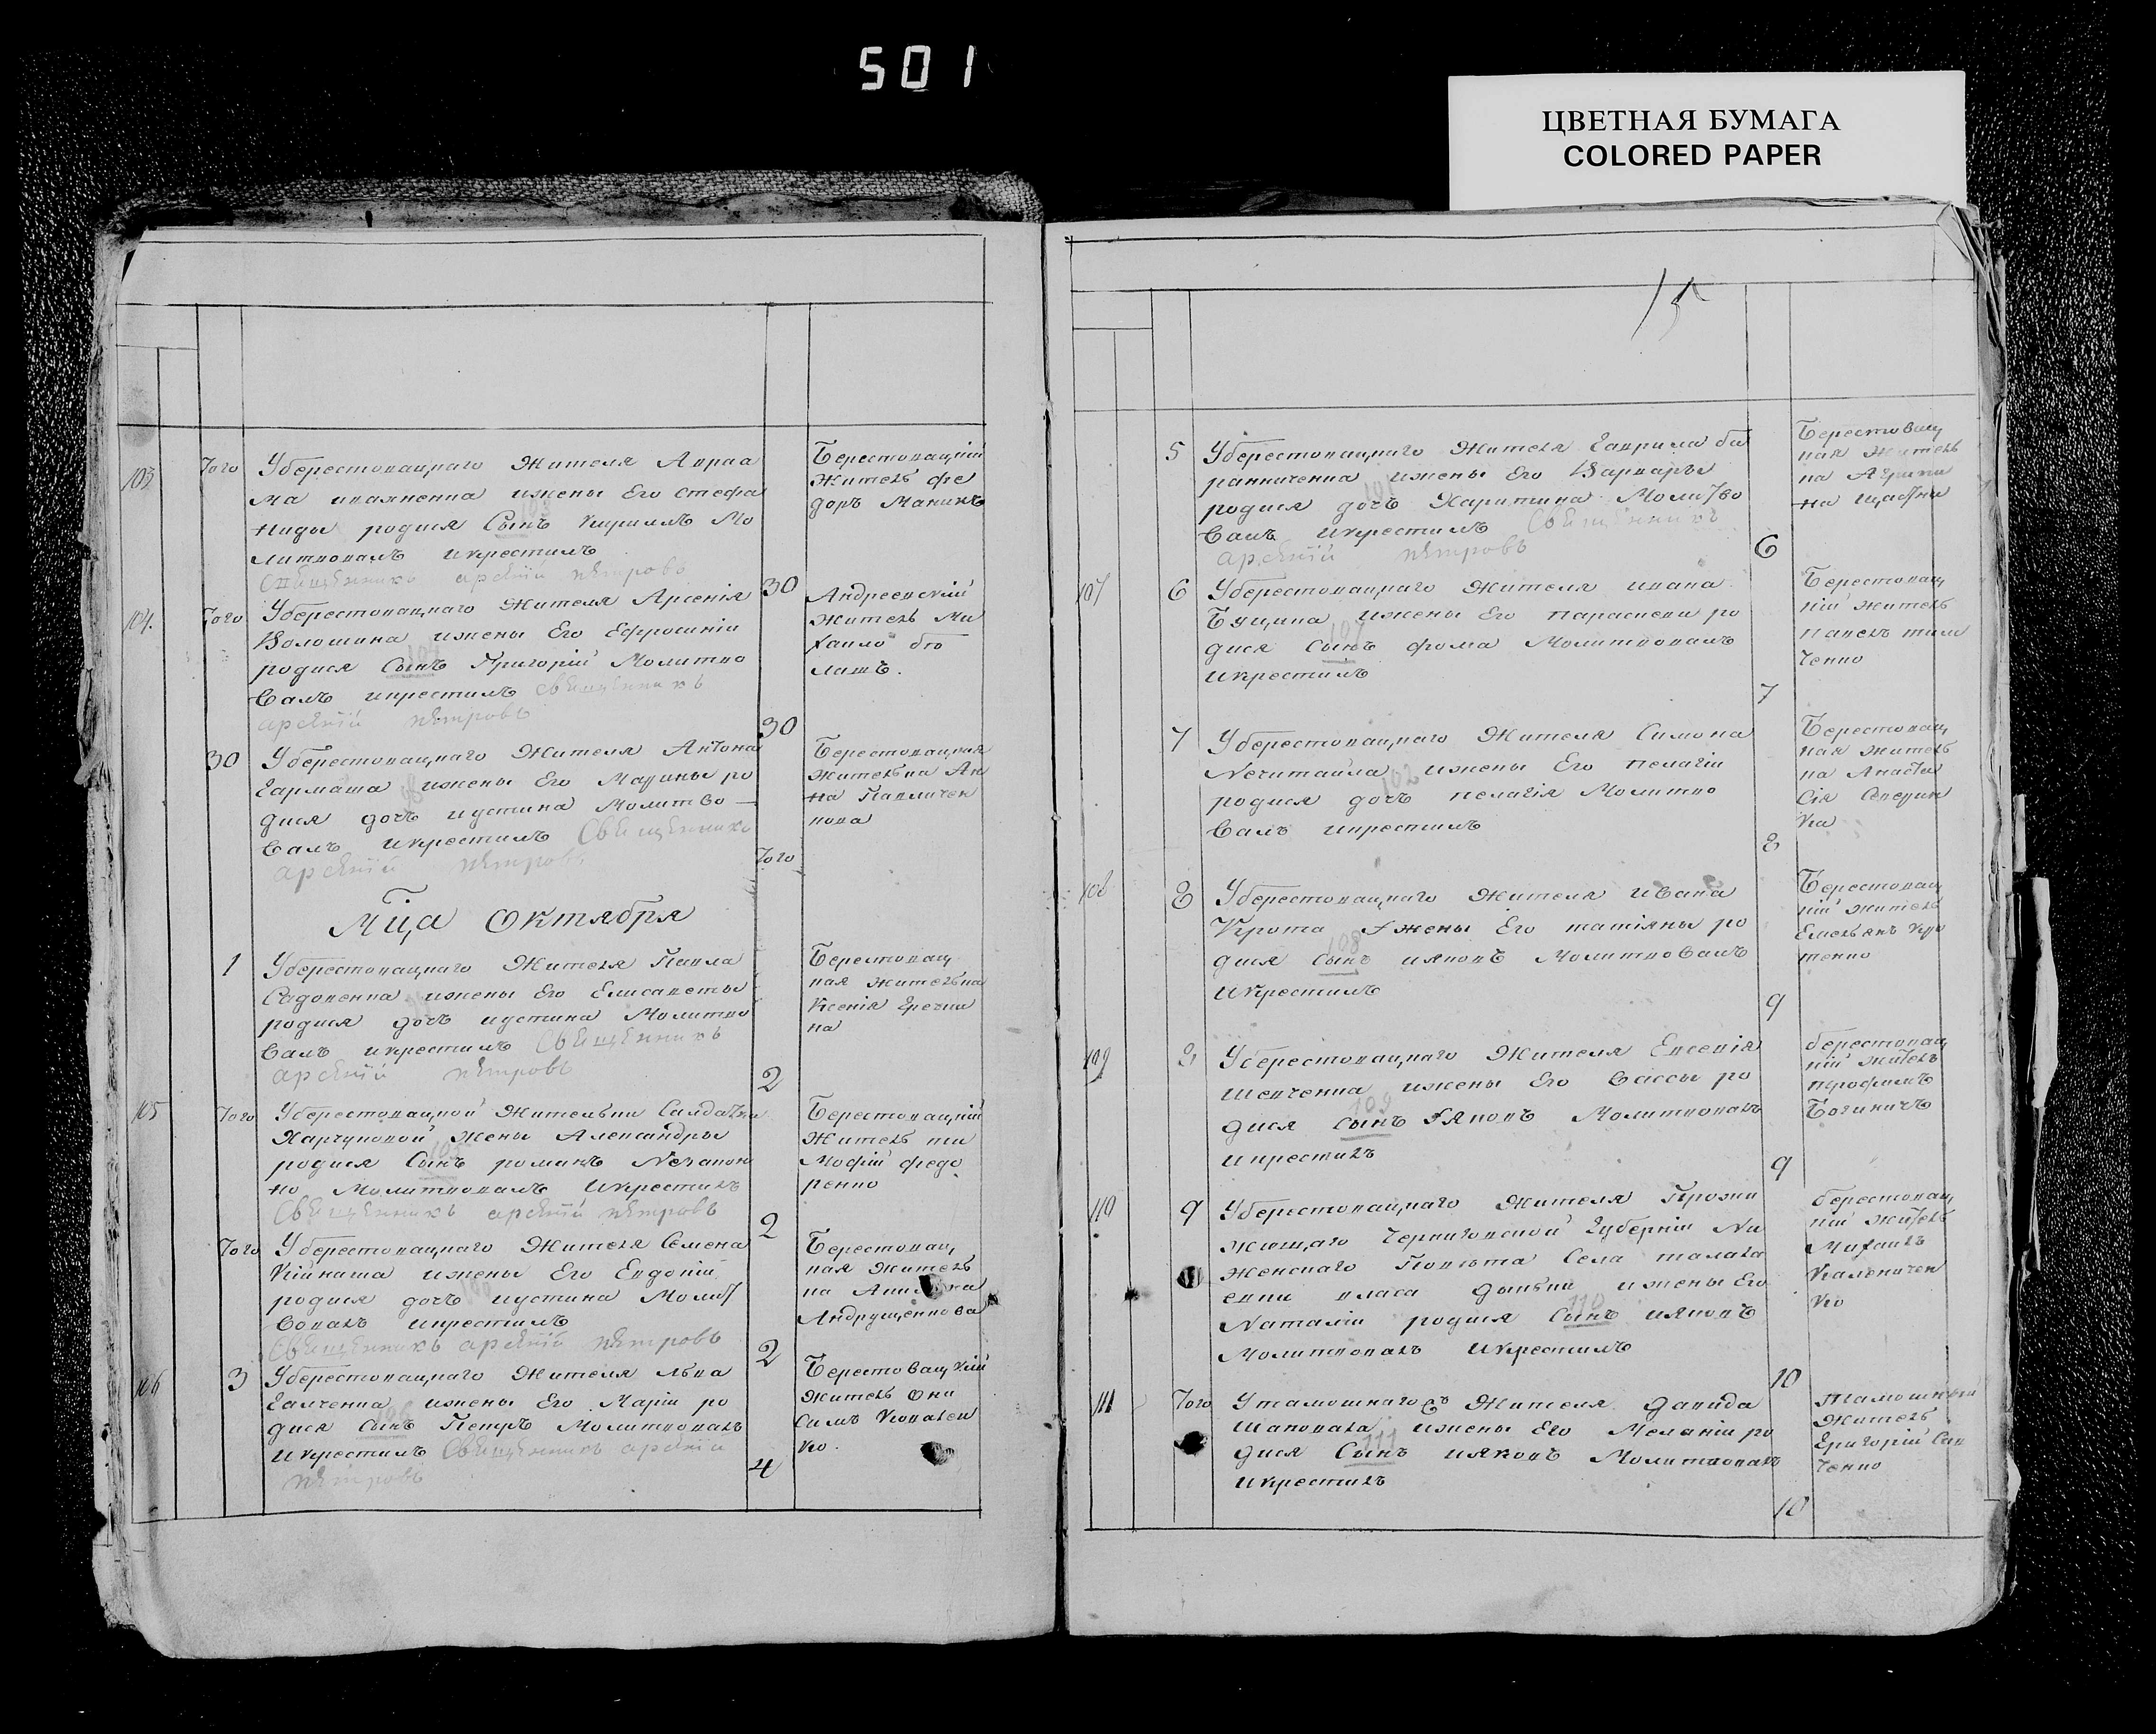 501
ЦВЕТНАЯ БУМАГА
COLORED PAPER
103
Того
Уберестовацкаго Жителя Авраа
ма ижены Его стефа
ниды родися Сынъ кириллъ Мо
литвовалъ икрестилъ
Священникъ арсений петровъ
30
Берестовацкій
житель фе
доръ Маникъ
104.
Того
Уберестовацкаго Жителя Арсенія
Волошина ижены Его Ефросиніи
родися Сынъ Григорій Молитво
валъ икрестилъ священникъ
арсений петровъ
30
Андреевскій
житель Ми
хаило
30
Уберестовацкаго Жителя Антона
Гармаша ижены Его Марины ро
дися дочъ иустина Молитво
валъ икрестилъ Священникъ
арсений петровъ
Того
Берестовацкая
жителька Ан
на Павличен
кова
Мца Октября
1
Уберестовацкаго Жителя Павла
Садовенка ижены Его Елисаветы
родися дочъ иустина Молитво
валъ икрестилъ Священникъ
арсений петровъ
2
Берестовац
кая жителька
Ксенія Гречки
на
105
Того
Уберестовацкой Жительки Салдатки
Харчуковой жены Александры
родися Сынъ романъ Незакон
но Молитвовалъ Икрестилъ
Священникъ арсений петровъ
2
Берестовацкій
Житель ти
мофій федо
ренко
Того
Уберестовацкаго Жителя Семена
Кійкаша ижены Его Евдокіи
родися дочъ иустина Молит
вовалъ икрестилъ
Священникъ арсений петровъ
2
Берестовац
кая житель
ка
Андрущенкова
106
3
Уберестовацкаго Жителя Льва
Галченка ижены Его Маріи ро
дися Сынъ Петръ Молитвовалъ
Икрестилъ Священникъ арсений
петровъ
4
Берестовацкій
житель Они
симъ Коваленко
15
5
Уберестовацкаго Жителя Гаврила ба
ранниченка ижены Его Варвары
родися дочъ Харитина Молитво
валъ икрестилъ Священникъ
арсений петровъ
6
Берестовац
кая житель
ка
на
107
6
Уберестовацкаго Жителя ивана
Буцина ижены Его параскеви ро
дися Сынъ фома Молитвовалъ
икрестилъ
7
Берестовац
кій житель
павелъ тим
ченко
7
Уберестовацкаго Жителя Симона
Нечитайла ижены Его пелагіи
родися дочъ пелагія Молитво
валъ икрестилъ
8
Берестовац
кая житель
ка Анаста
сія Северин
ка
108
8
Уберестовацкаго Жителя Ивана
Крота Ижены Его татіяны ро
дися Сынъ ияковъ Молитвовалъ
Икрестилъ
9
Берестовац
кій житель
Емельянъ Кро
тенко
109
8
Уберестовацкаго Жителя Евсевія
Шевченка ижены Его Вассы ро
дися Сынъ Іяковъ Молитвовалъ
икрестилъ
9
берестовац
кій житель
Богиничъ
110
9
Уберестовацкаго Жителя Прожи
жющаго Черниговской Губерніи Ни
женскаго Повѣта Села талала
евки власа ижены Его
Наталіи родися Сынъ ияковъ
Молитвовалъ икрестилъ
10
берестовац
кій житель
Михаилъ
Калениченко
111
Того
Утамошнаго Жителя давида
Шаповала ижены Его Меланіи ро
дися Сынъ ияковъ Молитвовалъ
икрестилъ
10
Тамошный
житель
Григорій Сав
ченко